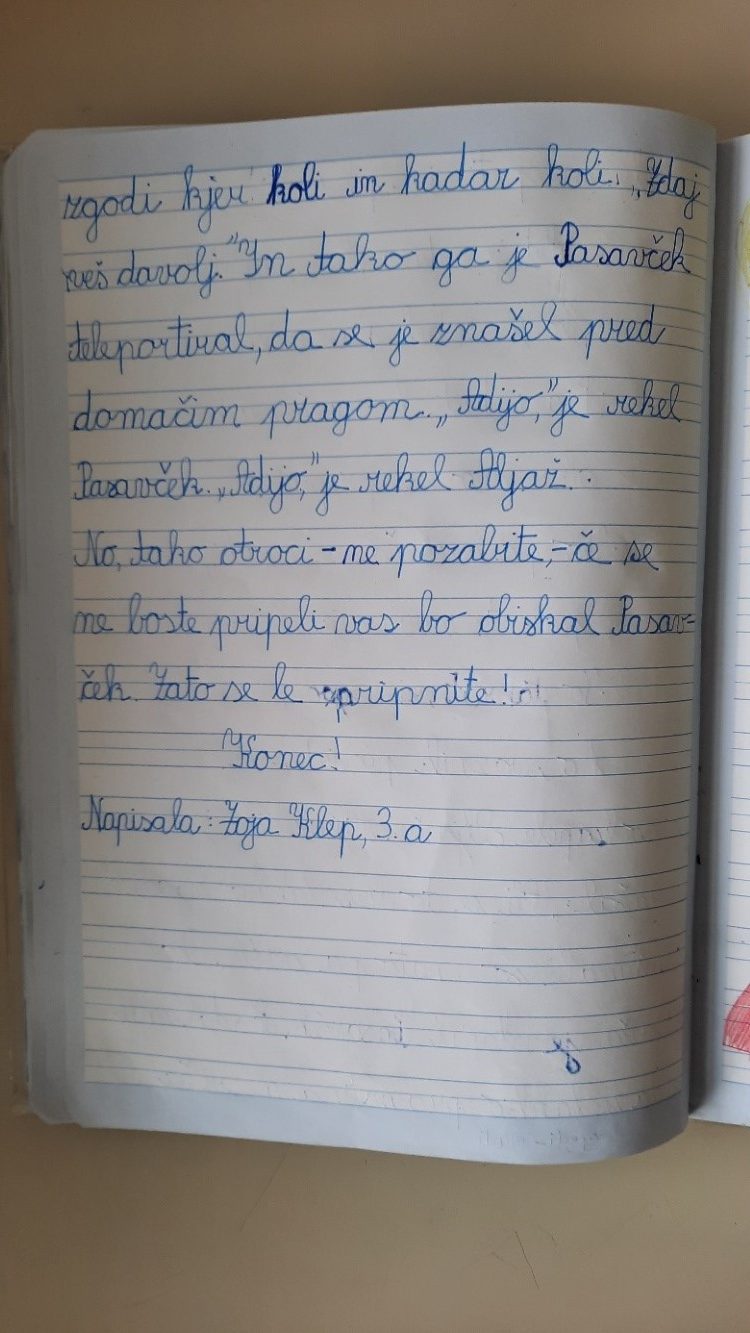 zgodi kjer koli in kadar koli. „Zdaj
veš davolj." In tako ga je Pasavček
teleportiral, da se je znašel pred
domačim pragom. „Adijo," je rekel
Pasavček. „Adijo," je rekel Aljaž.
No, tako otroci - ne pozabite, - če se
ne boste pripeli vas bo obiskal Pasav-
ček. Zato se le pripnite!
Konec!
Napisala: Zoja Klep, 3. a